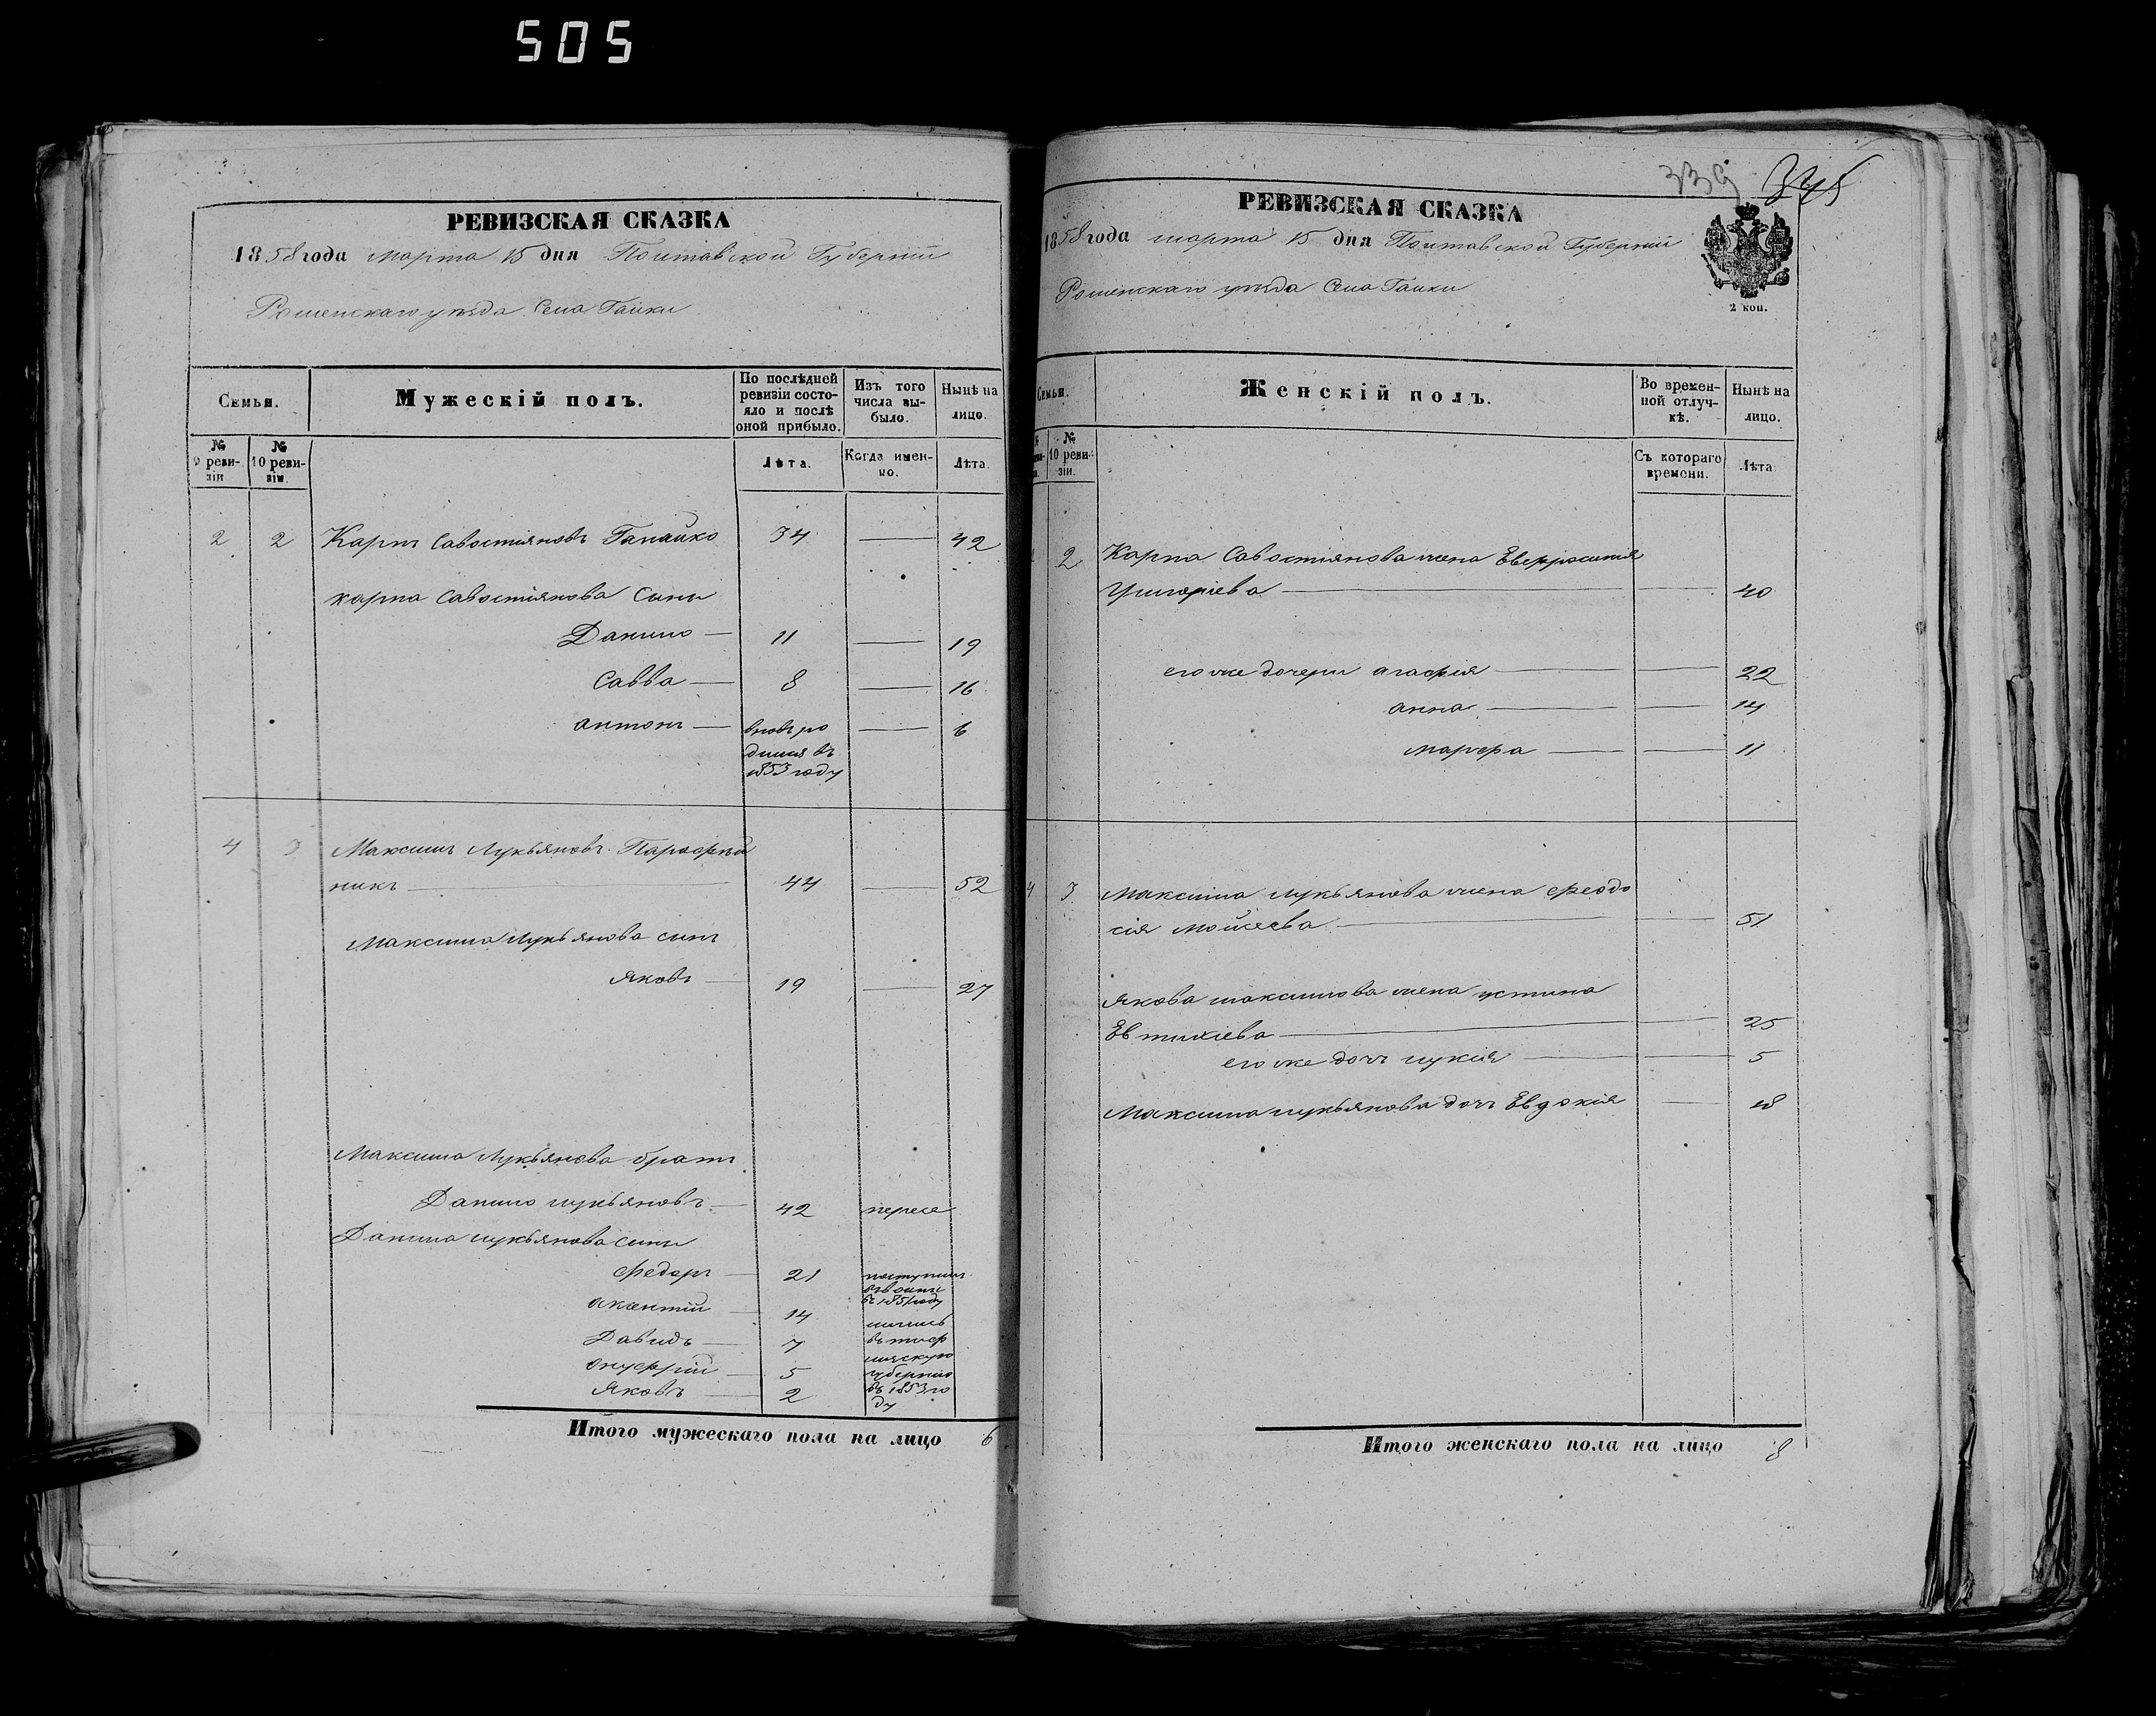 505
РЕВИЗСКАЯ СКАЗКА
1858 года марта 15 дня Полтавской Губернiи
Роменскаго уѣзда Села Гаики
Семьи.
Мужескій полъ.
По послѣдней ревизіи состояло и послѣ оной прибыло.
Изъ того числа выбыло.
Нынѣ на лицо.
№ 9 ревизіи
№ 10 ревизіи.
Лѣта.
Когда именно.
Лѣта.
2 2 Карпъ Савостіяновъ 34 — 42
карпа Савостіянова Сыны
Данило — 11 — 19
Савва — 8 — 16
антонъ — вновь ро — 6
дился въ
1853 году
4 3 Максимъ Лукьяновъ
никъ — 44 — 52
Максима Лукьянова сынъ
Яковъ — 19 — 27
Максима Лукьянова братъ
Данило лукьяновъ — 42 пересе
Данила лукьянова сыны
Федоръ — 21 поступил
въ 1851 году
14
лились
Давидъ — 7 въ
онуфрій — 5 губернію
Яковъ — 2 въ 1853 го
ду
Итого мужескаго пола на лицо 6
339 345
РЕВИЗСКАЯ СКАЗКА
1858 года марта 15 дня Полтавской Губерніи
Роменскаго уѣзда Села Гаики
2 коп.
Семьи.
Женскій полъ.
Во временной отлучкѣ.
Нынѣ на лицо.
№ 10 ревизіи.
Съ котораго времени.
Лѣта
2 Карпа Савостіянова жена Евфросинія
Григоріева — — 40
его же дочери агафія — — 22
анна — — 14
марфа — — 11
4 3 Максима лукьянова жена феодо
сія мойсеева — — 51
Якова максимова жена устина
Евтихіева — — 25
его же дочь лукія — — 5
Максима лукьянова дочь Евдокія — 18
Итого женскаго пола на лицо 8